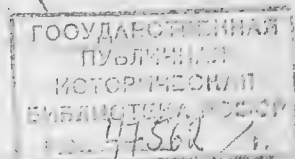 ГОСУДАРСТВЕННАЯ
ПУБЛИЧНАЯ
ИСТОРИЧЕСКАЯ
БИБЛИОТЕКА
47562 г.